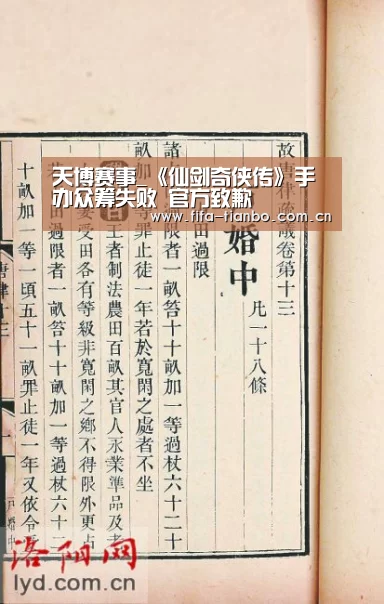 天博赛事_《仙剑奇侠传》手
办众筹失败 官方致歉
www.fifa-tianbo.com.cn
故唐律疏議卷第十三
婚中
凡一十八條
田過限
諸 限者一畝笞十十畝加一等過杖六十二十
畝加 等罪止徒一年若於寬閑之處者不坐
曰王者制法農田百畝其官人永業準品及老
妻妾受田各有等級非寬閑之鄉不得限外更占
田過限者一畝笞十十畝加一等過杖六十二
十畝加一等一頃五十一畝罪止徒一年又依令
洛阳网
lyd.com.cn